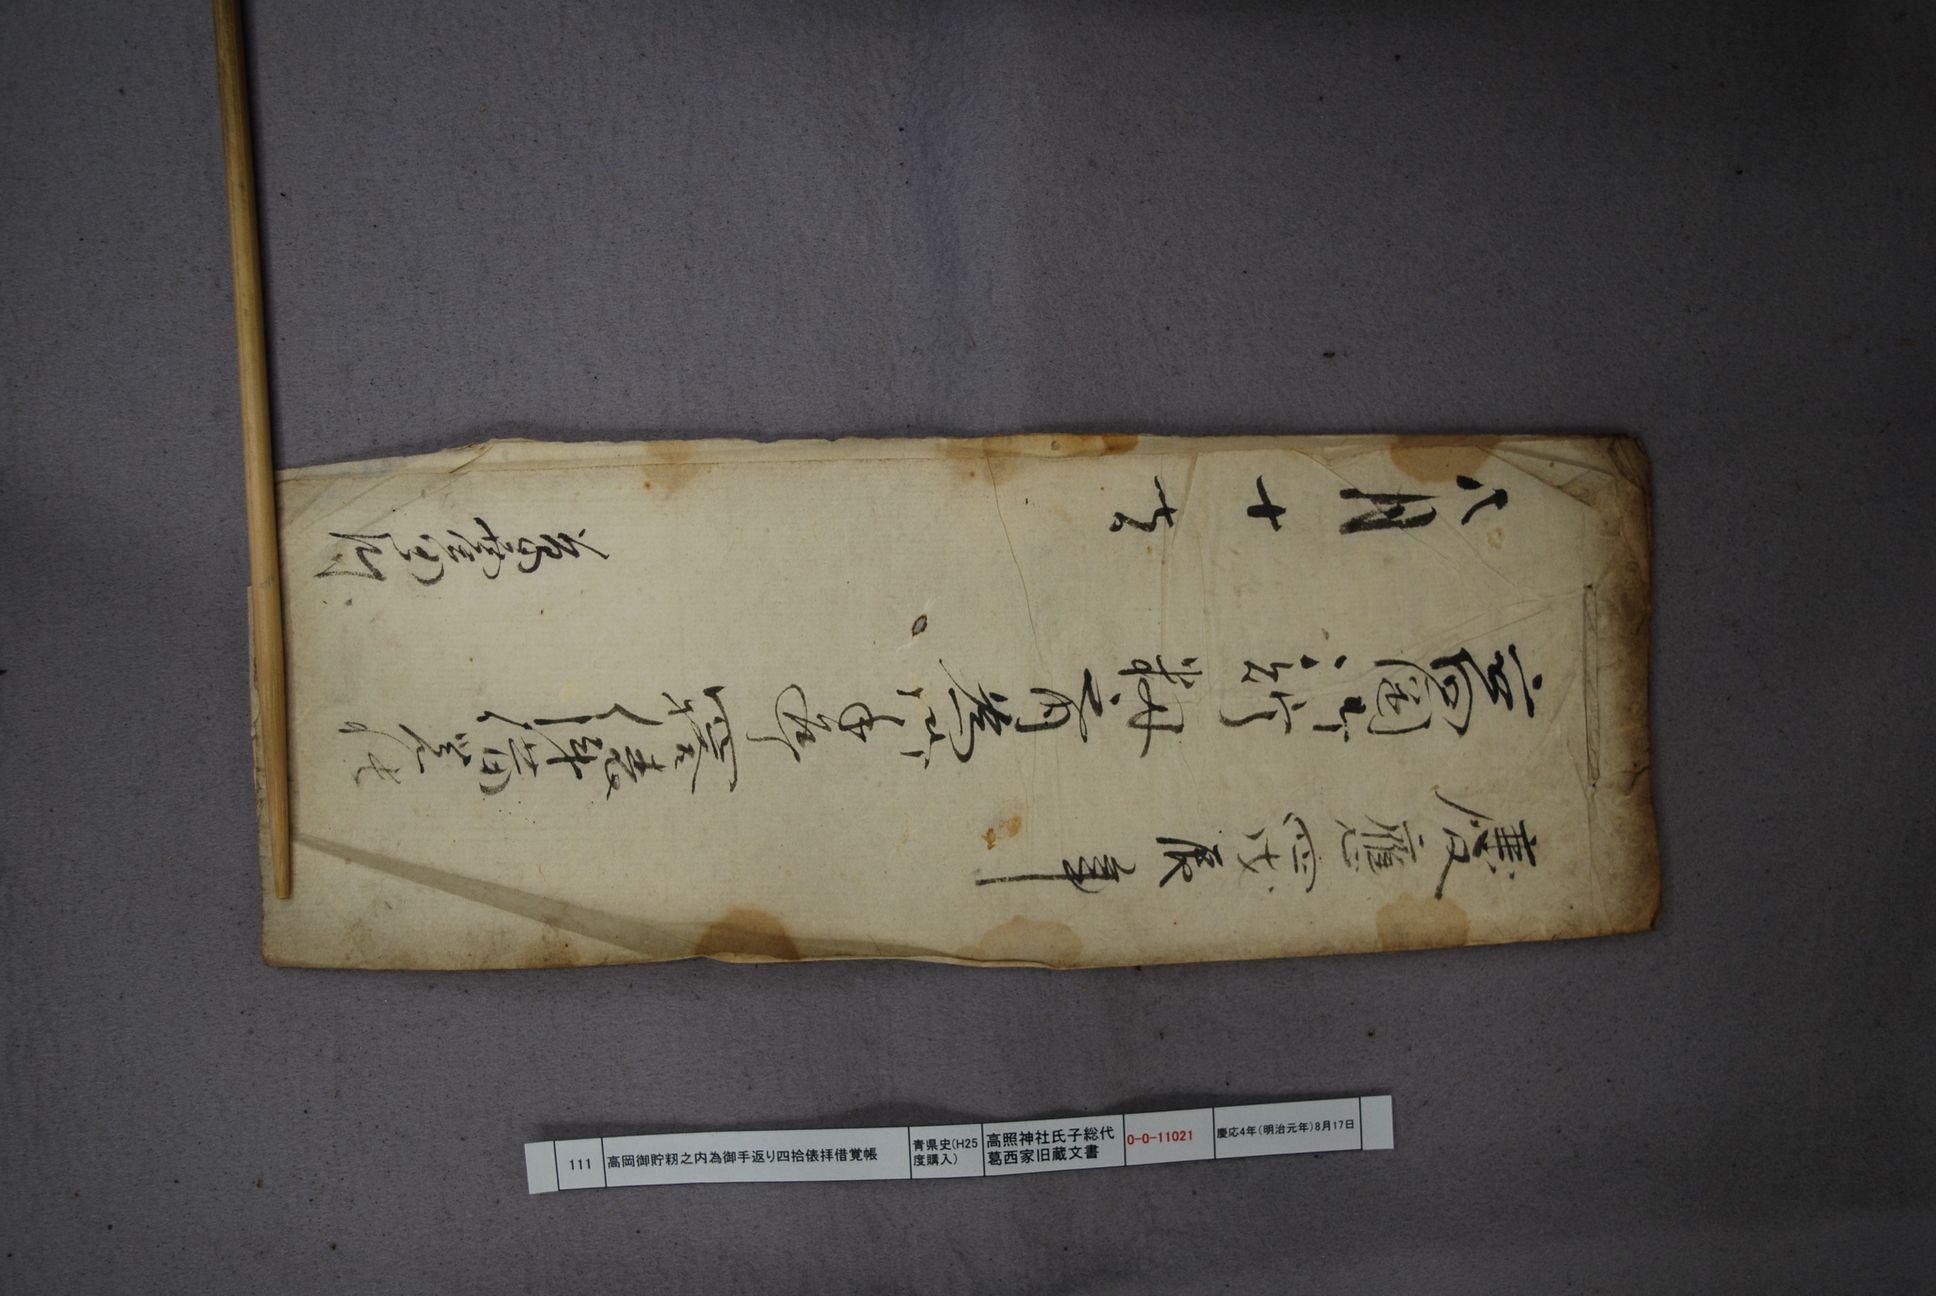 慶應四戊辰年
高岡御貯籾之内為御手返り
四拾俵拝借覚帳
八月十七日
111
高岡御貯籾之内為御手返り四拾俵拝借覚帳
青県史(H25
度購入)
高照神社氏子総代
葛西家旧蔵文書
0-0-11021
慶応4年(明治元年)8月17日